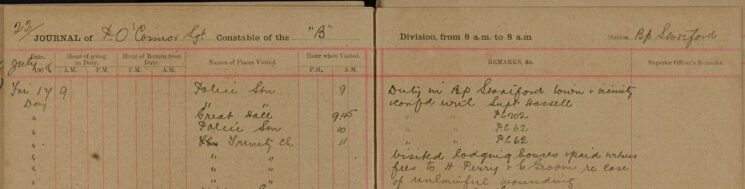 22/
JOURNAL of D O'Connor Sgt. Constable of the "B" Division, from 8 a.m. to 8 a.m Station Bp Stortford
Date. Hour of going on Duty. Hour of Return from Duty. Names of Places Visited. Hour when Visited. REMARKS, &c. Superior Officer's Remarks.
July 1908 A.M. P.M. A.M. P.M. P.M. A.M.
Fri 17 9 Police Stn 9 Duty in Bp Stortford town & vicinity
Day " " confd with Supt Hassell
" Great Hall 9.45 " " P.C 202
" Police Stn 10 " " P.C 62
" Trinity Ch. 11 " " P.C 62
" " " visited lodging houses & paid witness
" " " fees to H Perry & E Groom re case
" of unlawful wounding